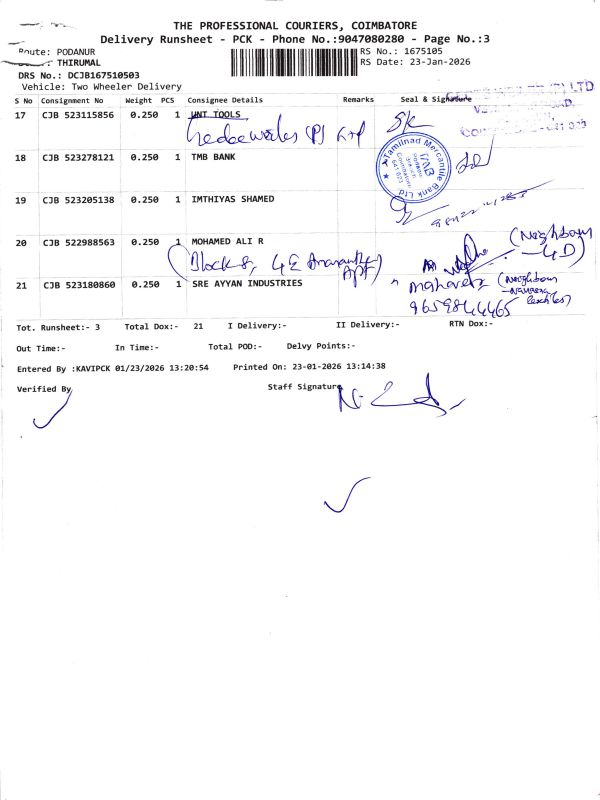 THE PROFESSIONAL COURIERS, COIMBATORE
Delivery Runsheet - PCK - Phone No.:9047080280 - Page No.:3
Route: PODANUR
RS No.: 1675105
: THIRUMAL
RS Date: 23-Jan-2026
DRS No.: DCJB167510503
Vehicle: Two Wheeler Delivery
S No Consignment No Weight PCS Consignee Details Remarks Seal & Signature
17 CJB 523115856 0.250 1 UNT TOOLS
18 CJB 523278121 0.250 1 TMB BANK
Tamilnad Mercantile Bank Ltd
TMB
19 CJB 523205138 0.250 1 IMTHIYAS SHAMED
20 CJB 522988563 0.250 1 MOHAMED ALI R
(Neighbour
Block 8, 4E
Apt
21 CJB 523180860 0.250 1 SRE AYYAN INDUSTRIES
(Neighbour
9659844465
Tot. Runsheet:- 3 Total Dox:- 21 I Delivery:- II Delivery:- RTN Dox:-
Out Time:- In Time:- Total POD:- Delvy Points:-
Entered By :KAVIPCK 01/23/2026 13:20:54 Printed On: 23-01-2026 13:14:38
Verified By Staff Signature